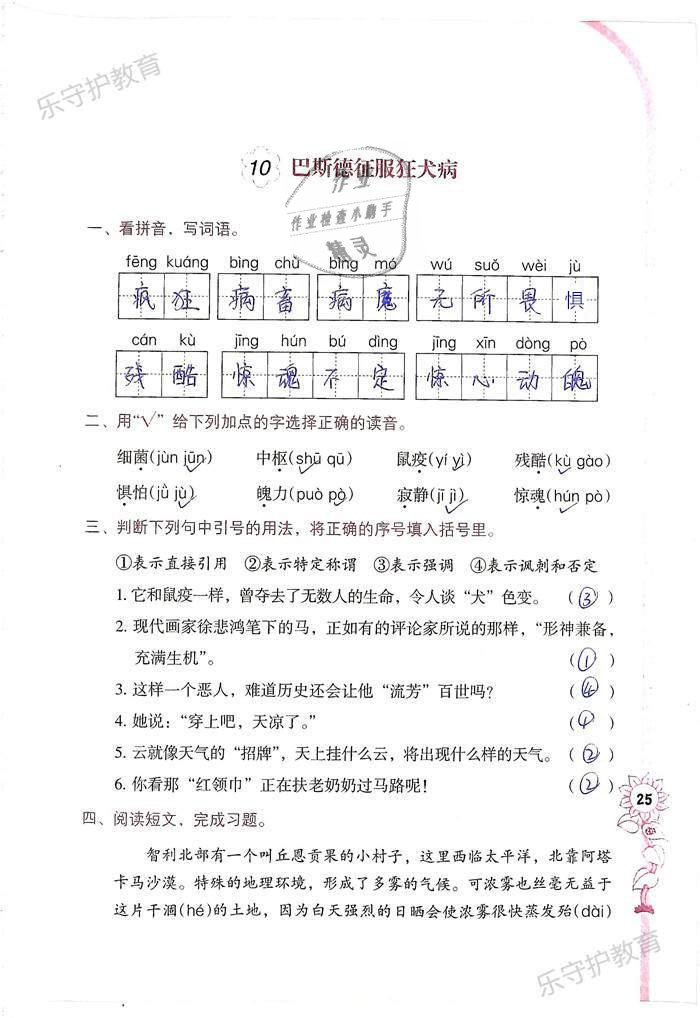 乐守护教育
10 巴斯德征服狂犬病
作业
作业检查小助手
精灵
一、看拼音，写词语。
fēng kuáng bìng chù bìng mó wú suǒ wèi jù
疯狂 病畜 病魔 无所畏惧
cán kù jīng hún bú dìng jīng xīn dòng pò
残酷 惊魂不定 惊心动魄
二、用“√”给下列加点的字选择正确的读音。
细菌(jùn jūn) 中枢(shū qū) 鼠疫(yí yì) 残酷(kù gào)
惧怕(jǜ jù) 魄力(può pò) 寂静(jī jì) 惊魂(hún pò)
三、判断下列句中引号的用法，将正确的序号填入括号里。
①表示直接引用 ②表示特定称谓 ③表示强调 ④表示讽刺和否定
1. 它和鼠疫一样，曾夺去了无数人的生命，令人谈“犬”色变。 (③)
2. 现代画家徐悲鸿笔下的马，正如有的评论家所说的那样，“形神兼备，
充满生机”。 (①)
3. 这样一个恶人，难道历史还会让他“流芳”百世吗？ (④)
4. 她说：“穿上吧，天凉了。” (①)
5. 云就像天气的“招牌”，天上挂什么云，将出现什么样的天气。 (②)
6. 你看那“红领巾”正在扶老奶奶过马路呢！ (②)
25
四、阅读短文，完成习题。
智利北部有一个叫丘恩贡果的小村子，这里西临太平洋，北靠阿塔
卡马沙漠。特殊的地理环境，形成了多雾的气候。可浓雾也丝毫无益于
这片干涸(hé)的土地，因为白天强烈的日晒会使浓雾很快蒸发殆(dài)
乐守护教育